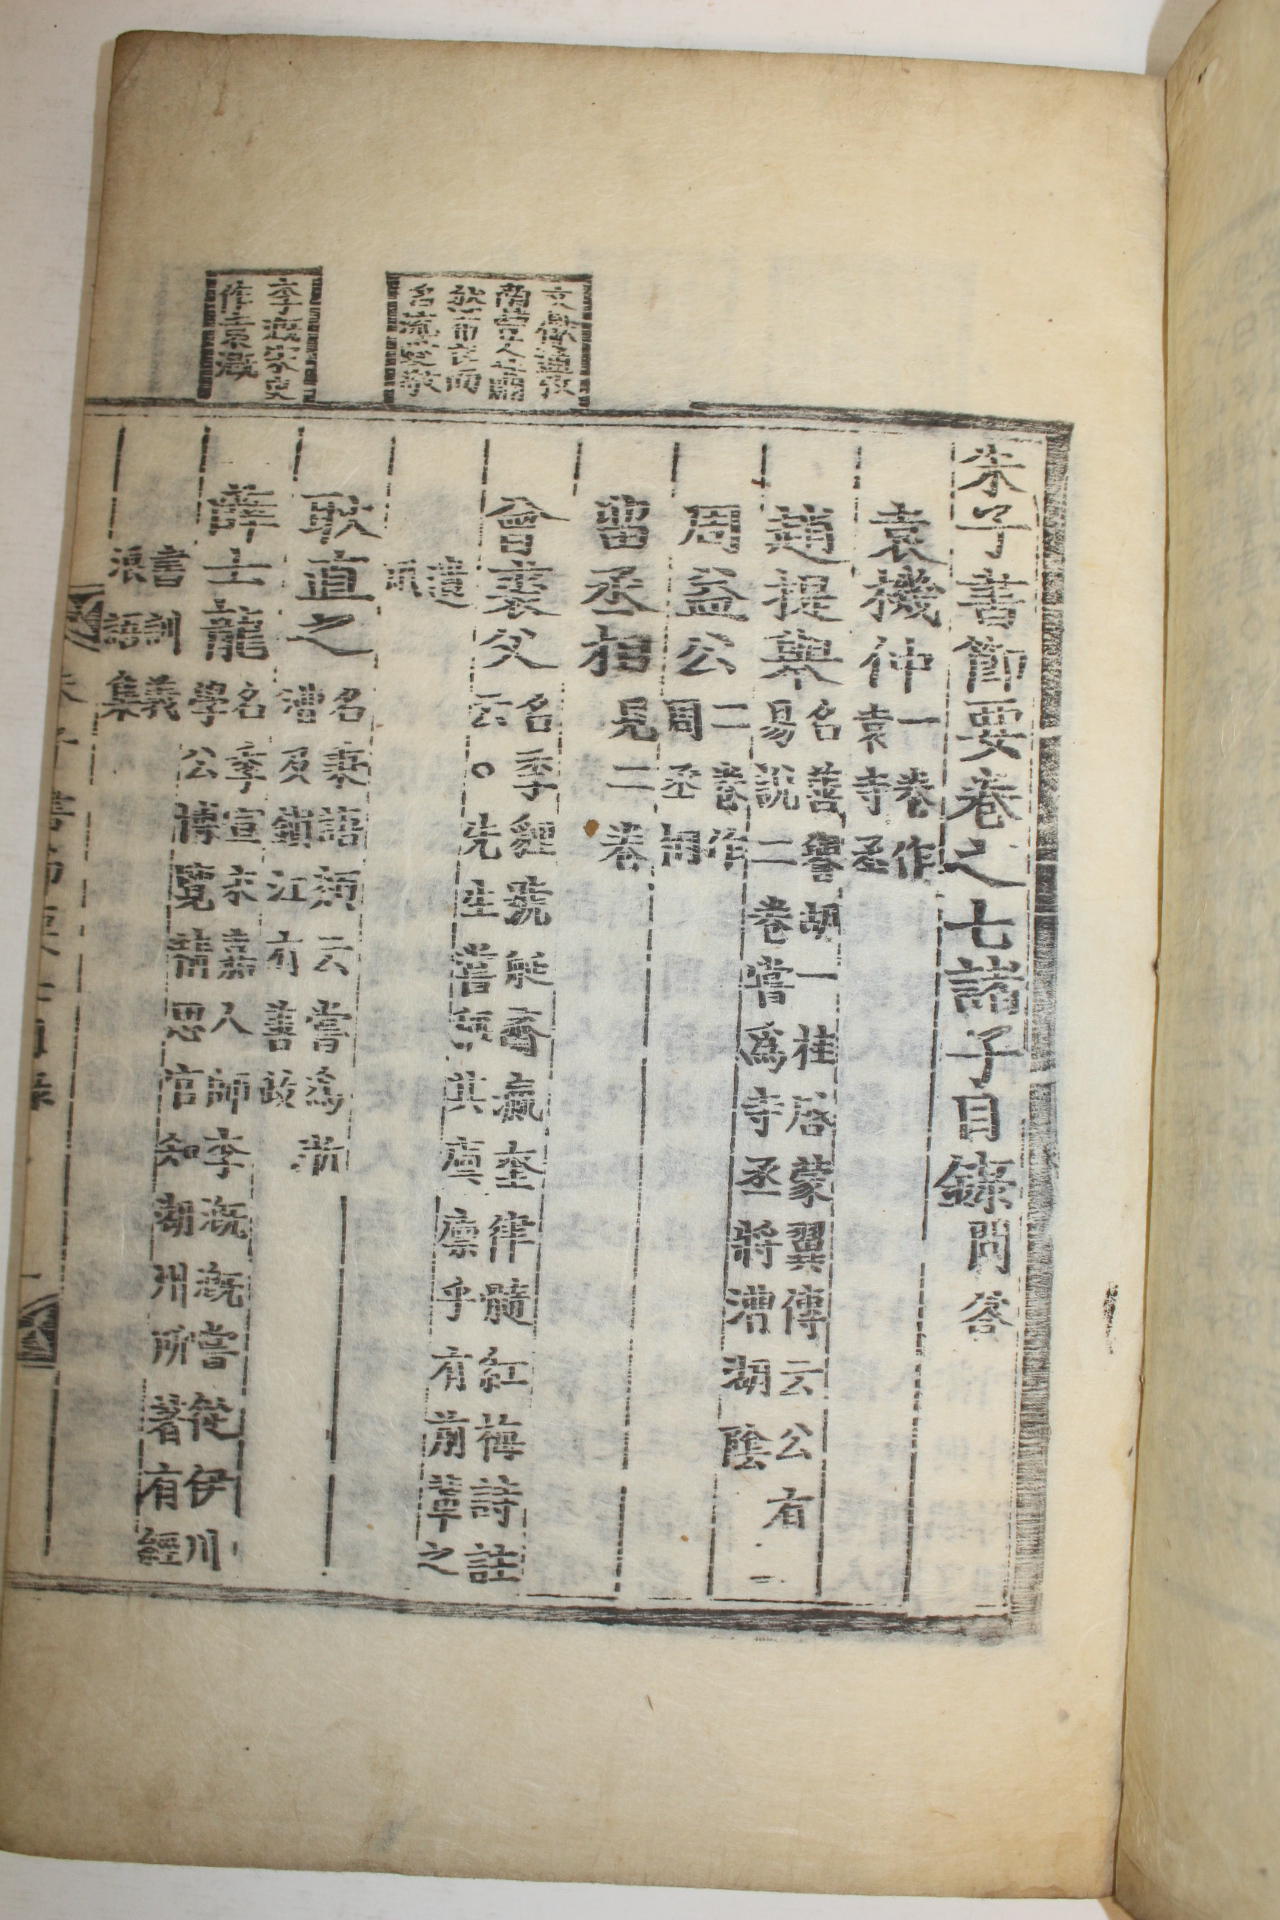 朱子書節要卷之七諸子目錄問答
袁機仲一卷作
袁寺丞
趙提舉名善譽胡一桂啓蒙翼傳云公有
易說二卷嘗爲寺丞將漕湖陰
周益公二卷作
周丞相
留丞相見二卷
曾裘父名季貍號艇齋瀛奎律髓紅梅詩註
云○先生嘗其凜乎有前輩之
遺風
耿直之名秉語類云嘗爲浙
漕及鎭江有善政
薛士龍名季宣永嘉人師李漑漑嘗從伊川
學公博覽精思官知湖州所著有經
書訓義
浪語集
李漑宋史
作袁漑